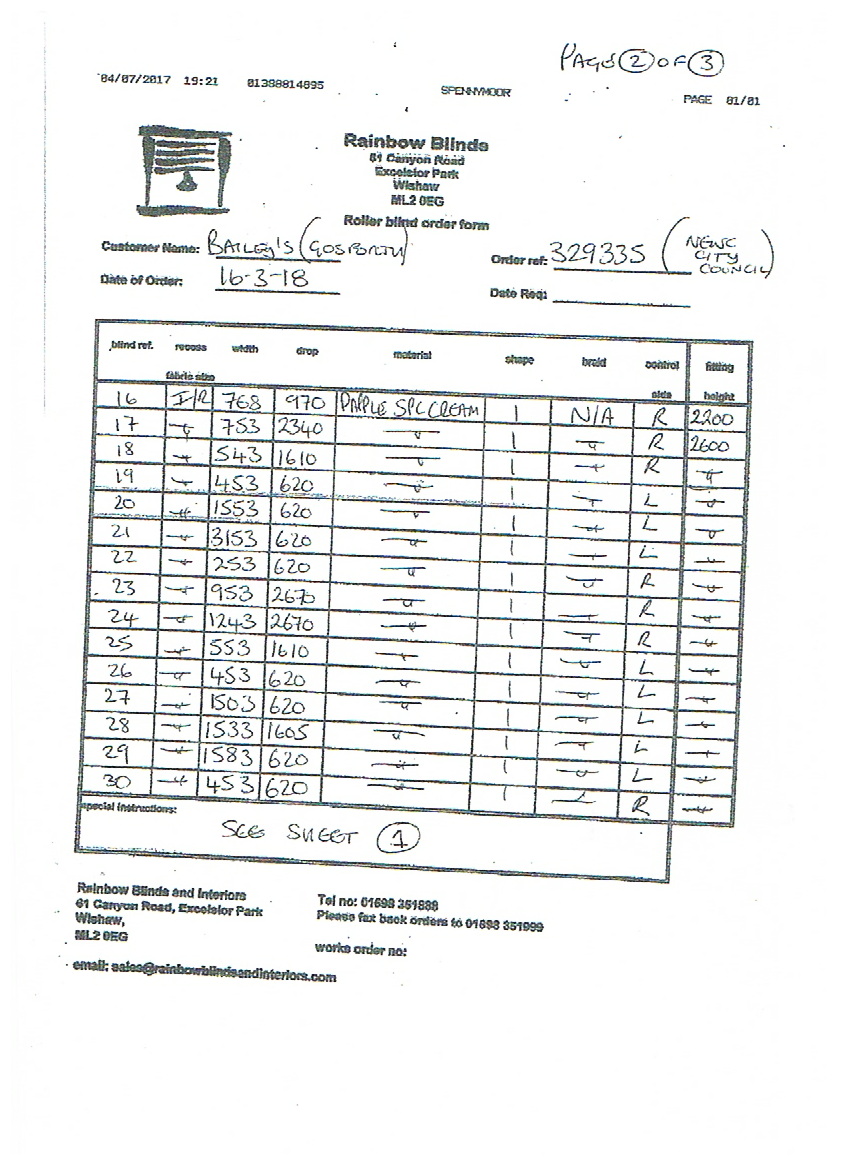 PAGE 2 OF 3
04/07/2017 19:21 01388814895 SPENNYMOOR PAGE 01/01
Rainbow Blinds
61 Canyon Road
Excelsior Park
Wishaw
ML2 0EG
Roller blind order form
Customer Name: BAILEY'S (GOSFORTH) Order ref: 329335 (NEWC CITY COUNCIL)
Date of Order: 16-3-18 Date Req:
blind ref. recess width drop material shape braid control side fitting height
fabric size
16 I/R 768 970 SPC CREAM 1 N/A R 2200
17 " 753 2340 " 1 " R 2600
18 " 543 1610 " 1 " R "
19 " 453 620 " 1 " L "
20 " 1553 620 " 1 " L "
21 " 3153 620 " 1 " L "
22 " 253 620 " 1 " R "
23 " 953 2670 " 1 " R "
24 " 1243 2670 " 1 " R "
25 " 553 1610 " 1 " L "
26 " 453 620 " 1 " L "
27 " 1503 620 " 1 " L "
28 " 1533 1605 " 1 " L "
29 " 1583 620 " 1 " L "
30 " 453 620 " 1 " R "
special instructions:
SEE SHEET 1
Rainbow Blinds and Interiors
61 Canyon Road, Excelsior Park
Wishaw,
ML2 0EG
Tel no: 01698 351888
Please fax back orders to 01698 351999
works order no:
email: sales@rainbowblindsandinteriors.com